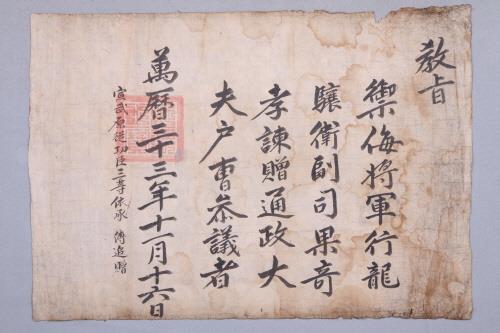 教旨
禦侮將軍行龍
驤衛副司果奇
孝諫贈通政大
夫戶曹參議者
萬曆三十三年十一月十六日
宣武原從功臣三等依承 傳追贈